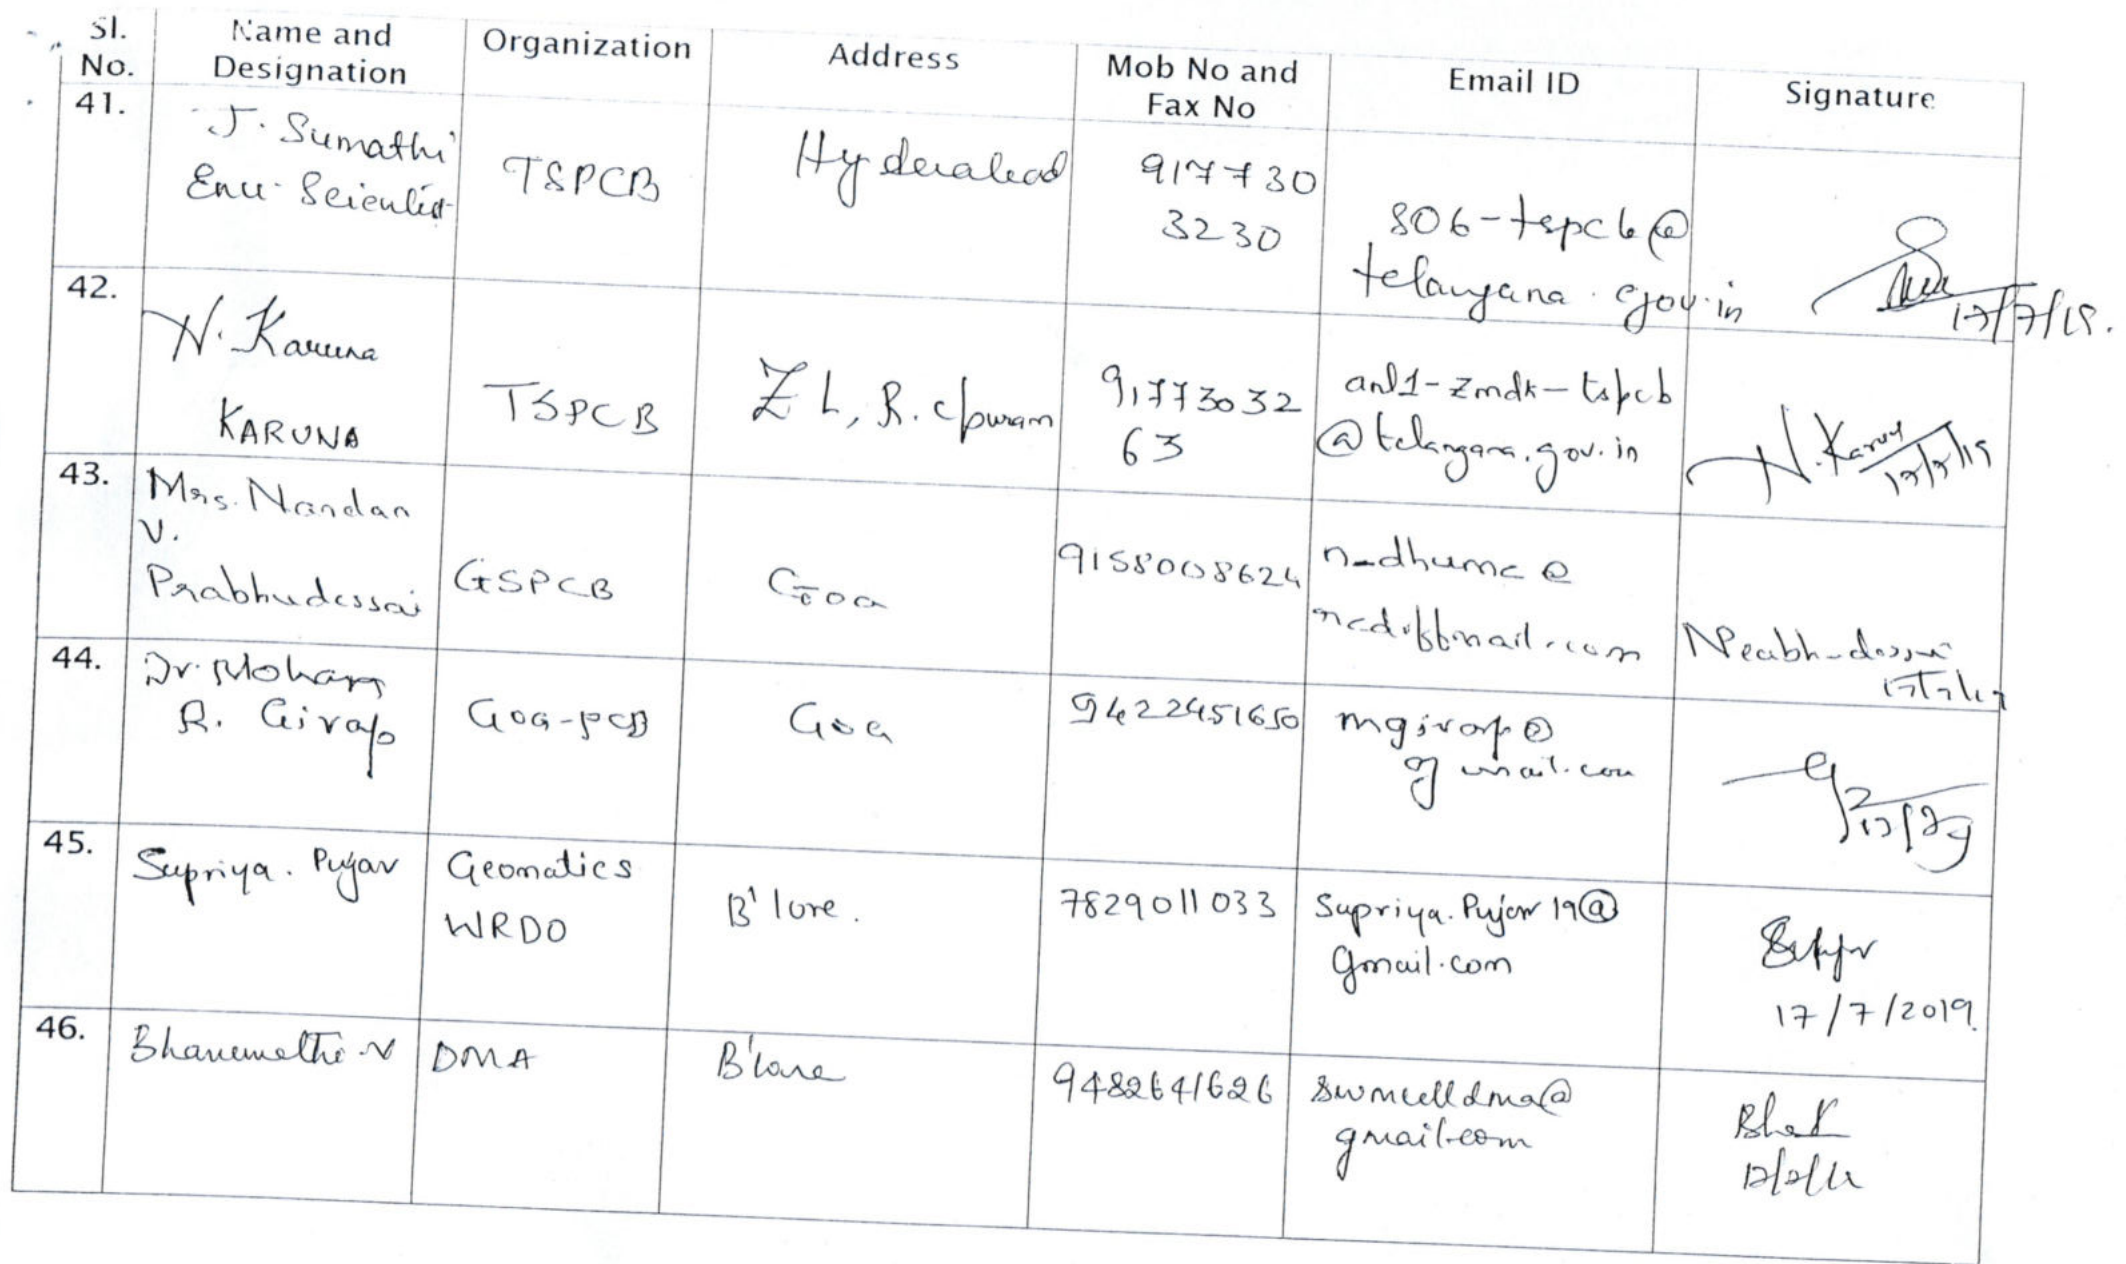 Sl. No. Name and Designation Organization Address Mob No and Fax No Email ID Signature
41.
J. Sumathi
Env. Scientist
TSPCB
Hyderabad
917730
3230
806-tspcb@
telangana.gov.in
17/7/19.
42.
N. Karuna
KARUNA
TSPCB
ZL, R.C.puram
91773032
63
anl1-zmdk-tspcb
@telangana.gov.in
N. Karuna
17/7/19
43.
Mrs. Nandan
V.
Prabhudessai
GSPCB
Goa
9158008624
n_dhume@
rediffmail.com
NPrabhudessai
44.
Dr. Mohan
R. Girap
Goa-PCB
Goa
9422451650
mgirap@
gmail.com
45.
Supriya. Pujar
Geomatics
WRDO
B'lore.
7829011033
Supriya.Pujar19@
gmail.com
17/7/2019.
46.
Bhanumathi.N
DMA
B'lore
9482641626
swmcelldma@
gmail.com